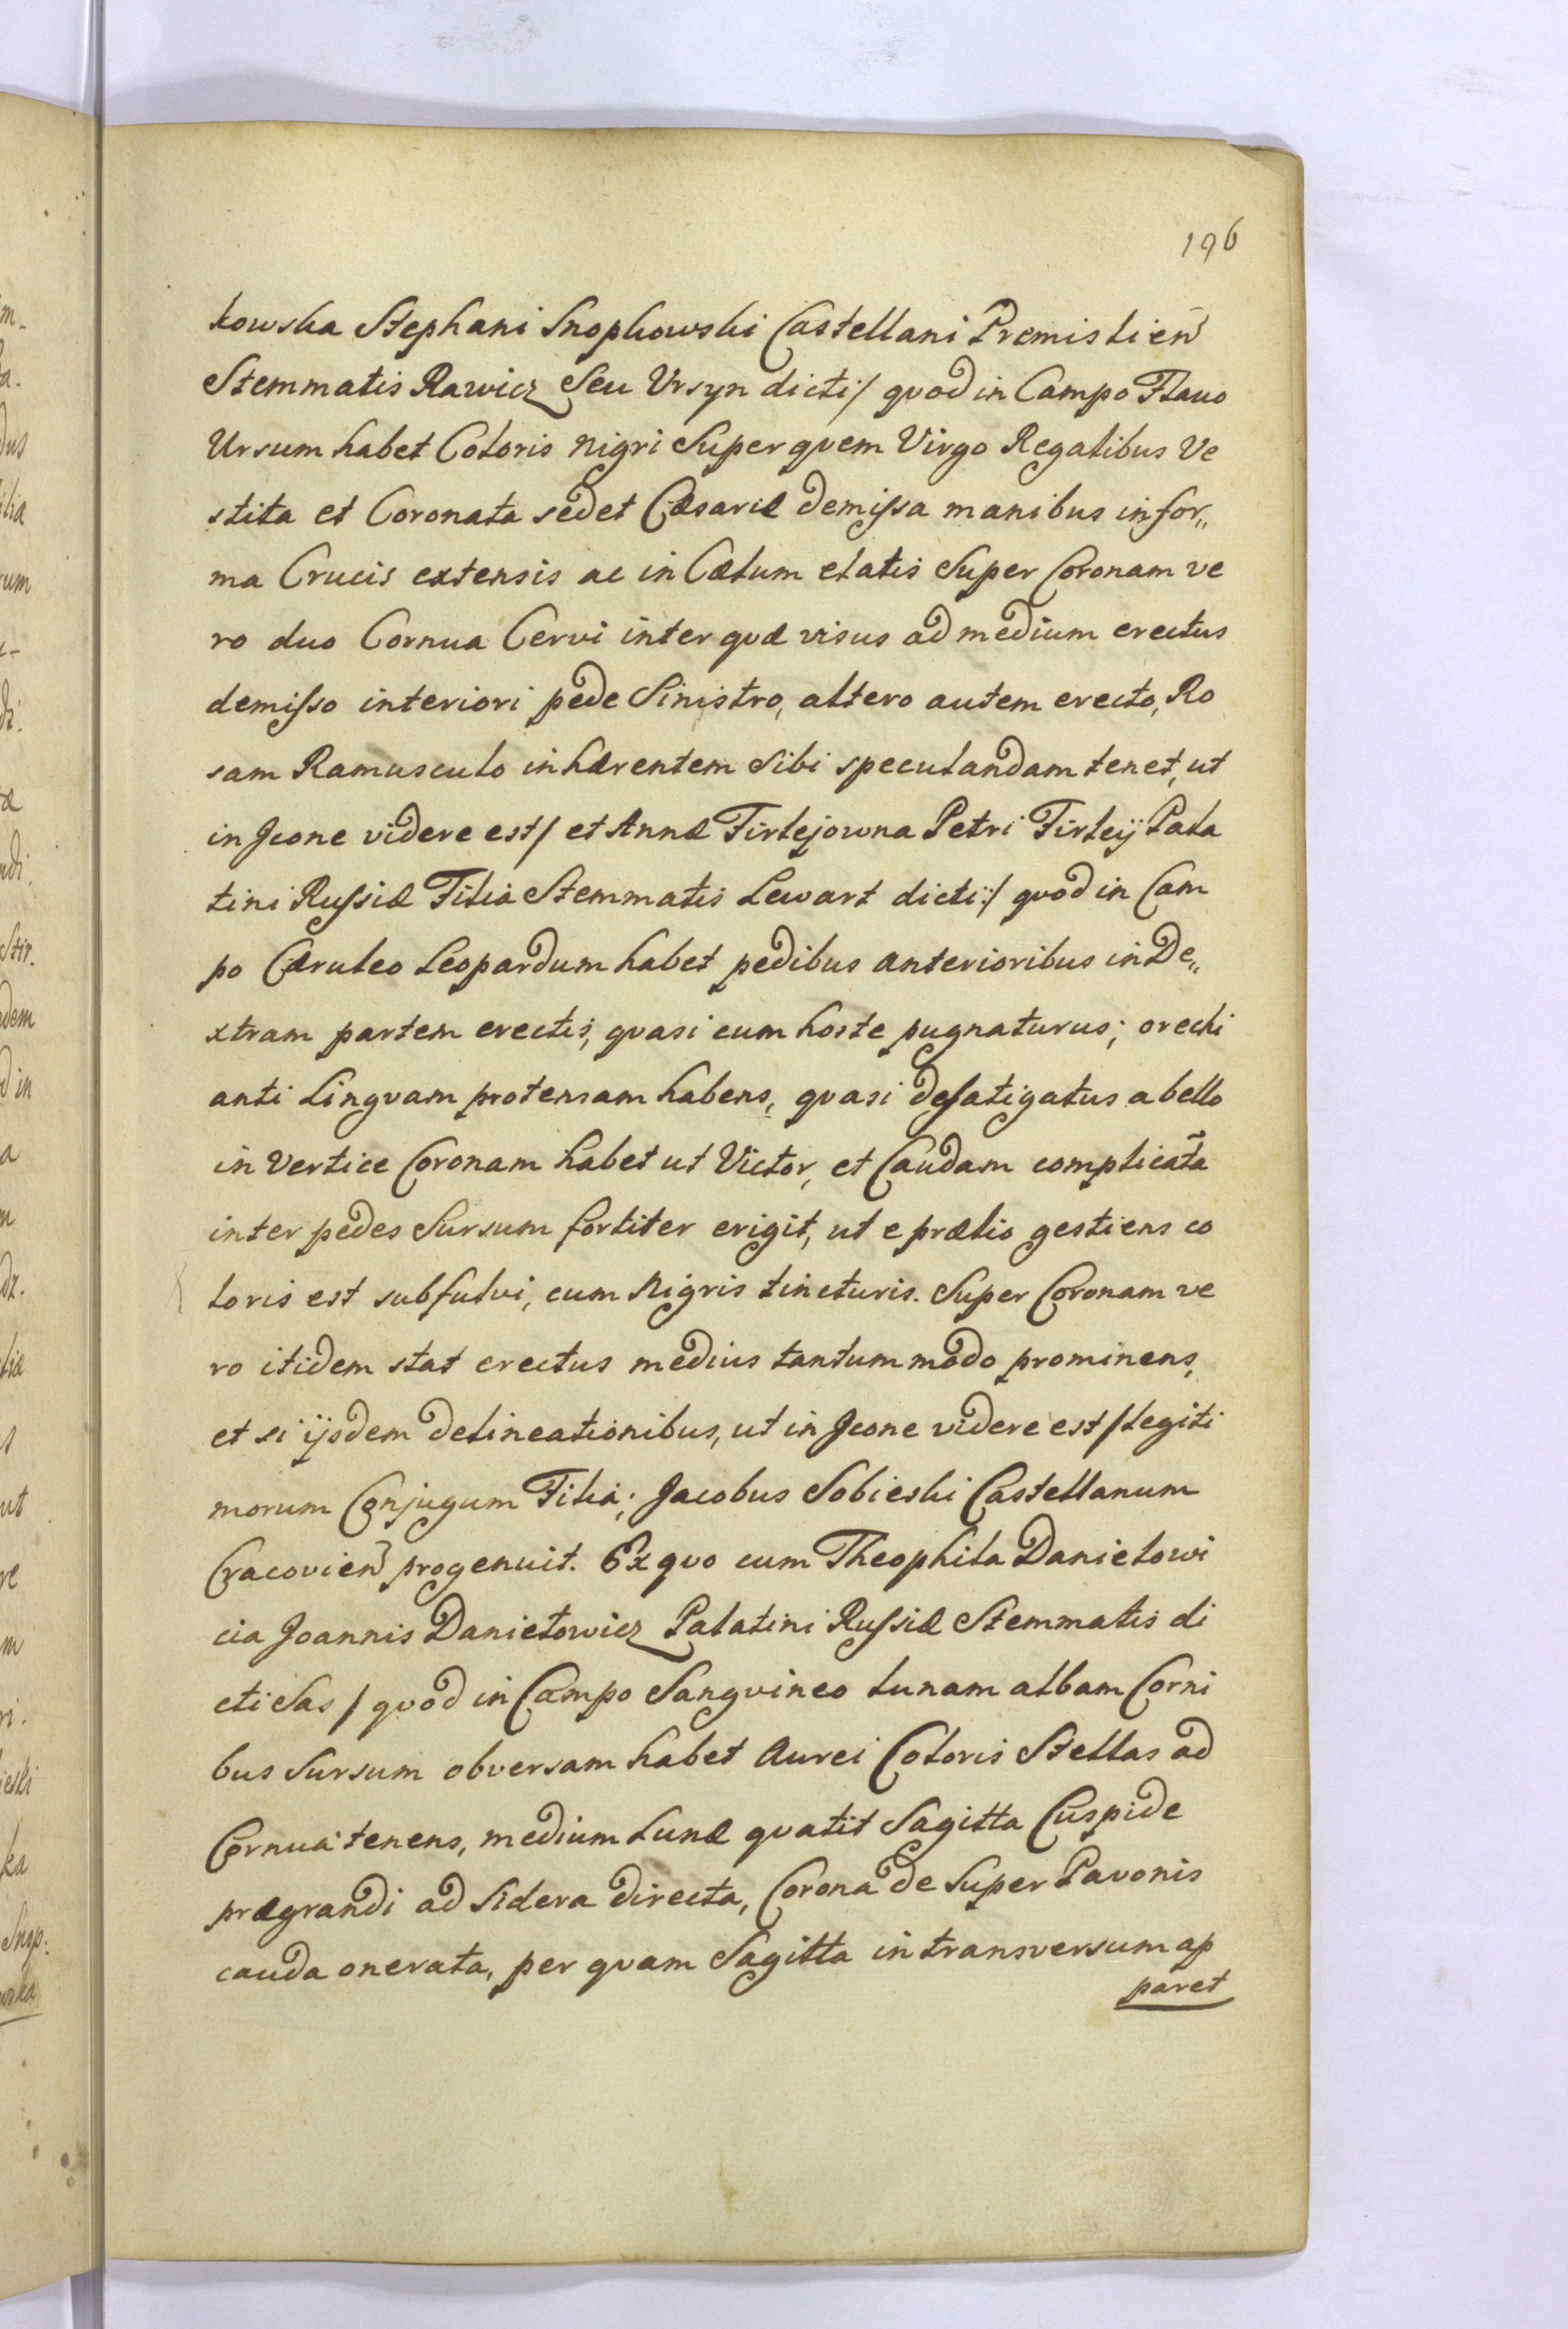 196
kowska Stephani Snopkowski Castellani Premislień
Stemmatis Rawicz Seu Ursyn dicti/ quod in Campo Flavo
Ursum habet Coloris nigri Super quem Virgo Regalibus Ve
stita et Coronata sedet Cæsariæ demissa manibus in for„
ma Crucis extensis ac in Cælum elatis Super Coronam ve
ro duo Cornua Cervi inter quæ visus ad medium erectus
demisso interiori pede Sinistro, altero autem erecto, Ro
sam Ramusculo inhærentem Sibi speculandam tenet, ut
in Icone videre est/ et Annæ Firlejowna Petri Firleij Pala
tini Russiæ Filia Stemmatis Lewart dicti:/ quod in Cam
po Cæruleo Leopardum habet pedibus anterioribus in De„
xtram partem erectis, quasi cum hoste pugnaturus; ore hi
anti Linguam protensam habens, quasi defatigatus a bello
in Vertice Coronam habet ut Victor, et Caudam complicatã
inter pedes Sursum fortiter erigit, ut e prælio gestiens co
loris est subfulvi, cum Nigris tincturis. Super Coronam ve
ro itidem stat erectus medius tantummodo prominens,
et si ijsdem delineationibus, ut in Icone videre est/ legiti
morum Conjugum Filia; Jacobus Sobieski Castellanum
Cracovień progenuit. Ex quo cum Theophila Danielowi
cia Joannis Danielowicz Palatini Russiæ Stemmatis di
cti Sas / quod in Campo Sanguineo Lunam albam Corni
bus Sursum obversam habet Aurei Coloris Stellas ad
Cornua tenens, medium Lunæ quatit Sagitta Cuspide
prægrandi ad Sidera directa, Corona de Super Pavonis
cauda onerata, per quam Sagitta in transversum ap
paret